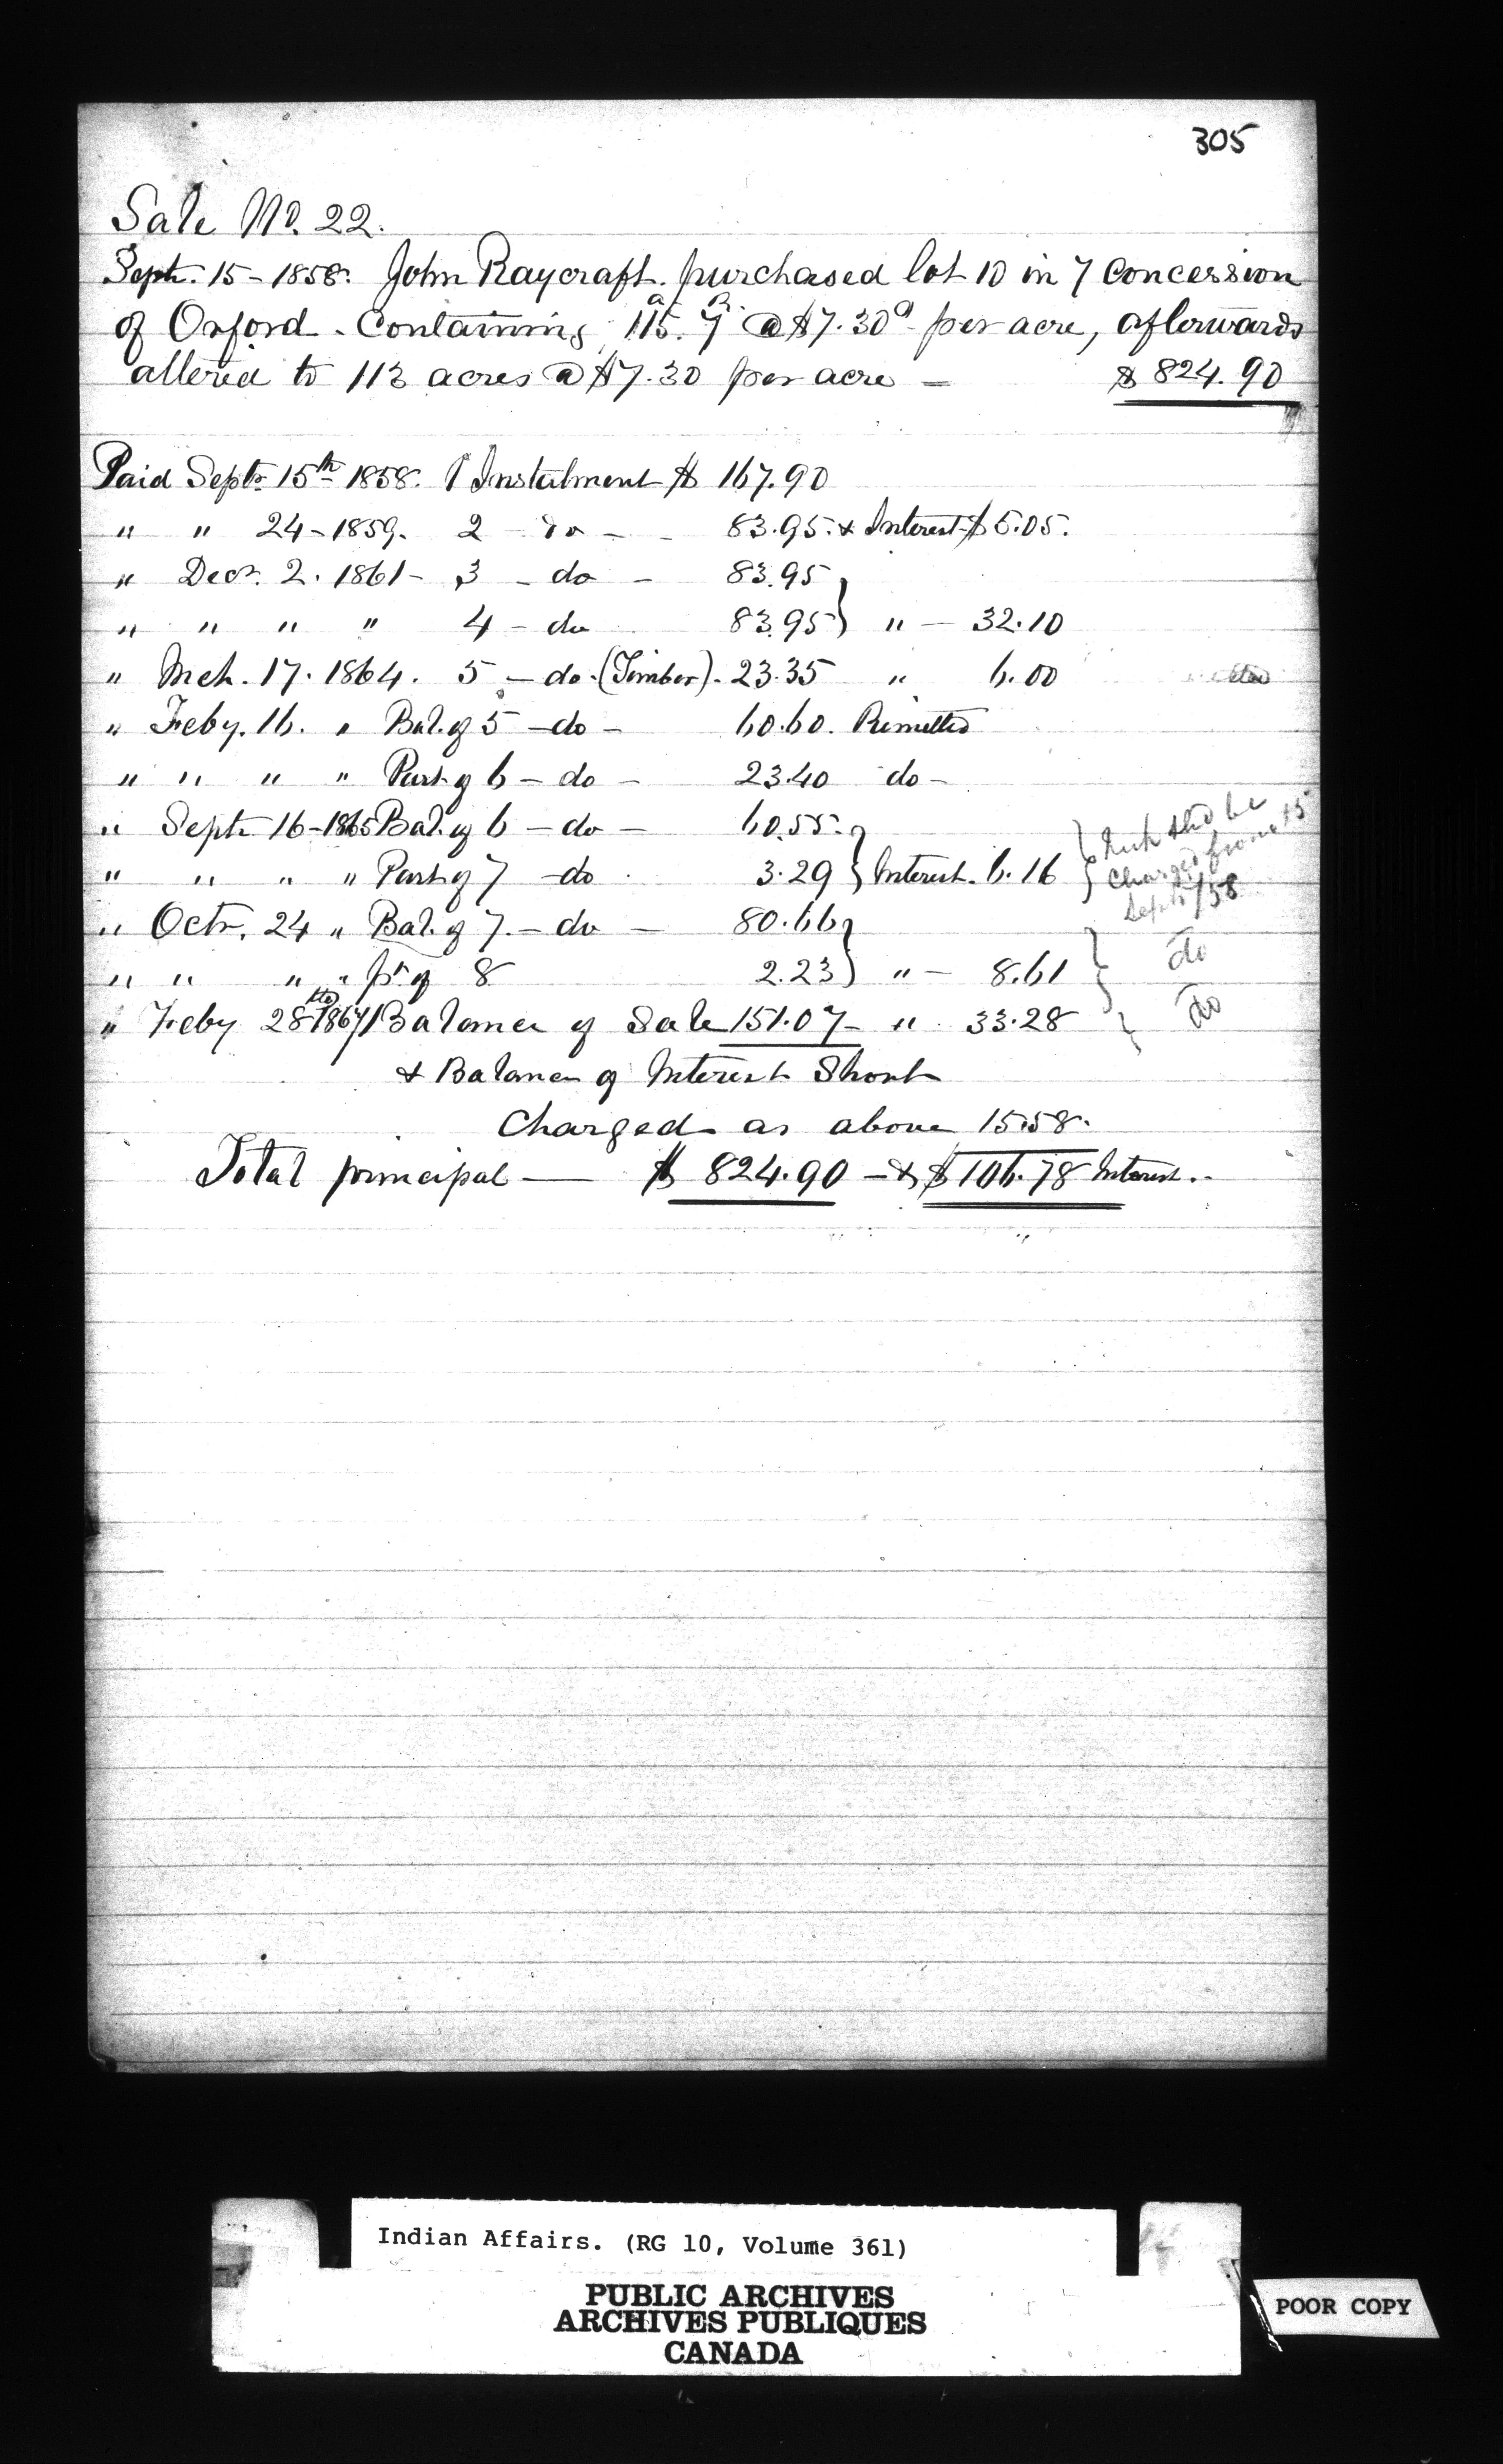 305
Sale No. 22.
Septr. 15 - 1858. John Raycraft. purchased lot 10 in 7 Concession
of Orford - Containing 115. a @ $7.30 per acre, afterwards
altered to 113 acres @ $7.30 per acre — $ 824.90
Paid Septr. 15th 1858. 1 Instalment $ 167.90
" " 24 - 1859. 2 - do - - 83.95. & Interest $ 5.05.
" Decr. 2. 1861 - 3 - do - 83.95
" " " " 4 - do 83.95 } " - 32.10
" Mch. 17. 1864. 5 - do. (Timber). 23.35 " 6.00
" Feby. 16. " Bal. of 5 - do - 60.60. Remitted
" " " " Part of 6 - do - 23.40 do -
" Septr 16 - 1865 Bal. of 6 - do - 60.55.
" " " " Part of 7 - do 3.29 } Interest. 6.16
} shd be
charged from 15
Sept /58
" Octr. 24 " Bal. of 7. - do - 80.66
" " " " pt of 8 2.23 } " - 8.61 } do
" Feby 28th 1867 / Balance of Sale 151.07 - " 33.28 } do
& Balance of Interest Short
Charged as above 15.58.
Total principal — $ 824.90 - & $ 106.78 Interest..
Indian Affairs. (RG 10, Volume 361)
PUBLIC ARCHIVES
ARCHIVES PUBLIQUES
CANADA
POOR COPY